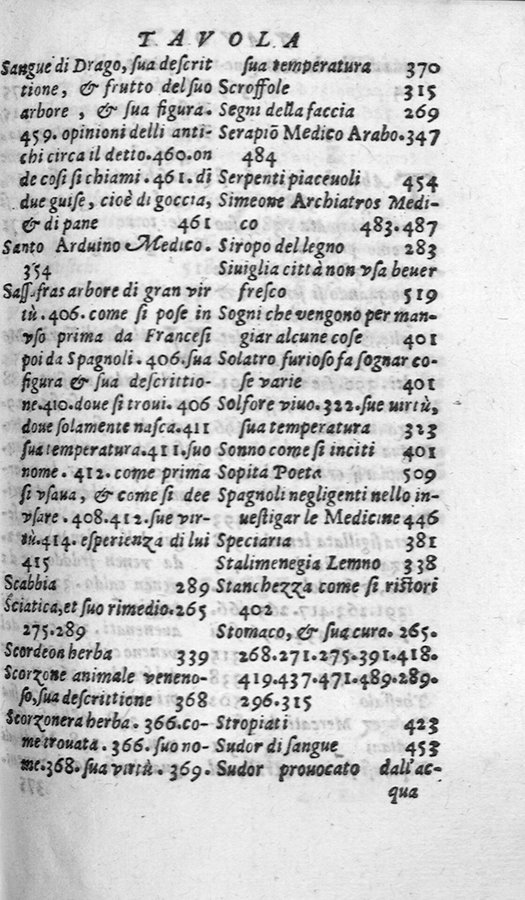 TAVOLA
Sangue di Drago, sua descrit
tione, & frutto del suo
arbore, & sua figura.
459. opinioni delli anti-
chi circa il detto. 460. on
de cosi si chiami. 461. di
due guise, cioè di goccia,
& di pane 461
Santo Arduino Medico.
354
Sassafras arbore di gran vir
tù. 406. come si pose in
vso prima da Francesi
poi da Spagnoli. 406. sua
figura & sua descrittio-
ne. 410. doue si troui. 406
doue solamente nasca. 411
sua temperatura. 411. suo
nome. 412. come prima
si vsaua, & come si dee
vsare. 408. 412. sue vir-
tù. 414. esperienza di lui
415
Scabbia 289
Sciatica, et suo rimedio. 265
275. 289
Scordeon herba 339
Scorzone animale veneno-
so, sua descrittione 368
Scorzonera herba. 366. co-
me trouata. 366. suo no-
me. 368. sua virtù. 369.
sua temperatura 370
Scroffole 315
Segni della faccia 269
Serapiõ Medico Arabo. 347
484
Serpenti piaceuoli 454
Simeone Archiatros Medi-
co 483. 487
Siropo del legno 283
Siuiglia città non vsa beuer
fresco 519
Sogni che vengono per man-
giar alcune cose 401
Solatro furioso fa sognar co-
se varie 401
Solfore viuo. 322. sue virtù,
sua temperatura 323
Sonno come si inciti 401
Sopita Poeta 509
Spagnoli negligenti nello in-
uestigar le Medicine 446
Speciaria 381
Stalimenegia Lemno 338
Stanchezza come si ristori
402
Stomaco, & sua cura. 265.
268. 271. 275. 391. 418.
419. 437. 471. 489. 289.
296. 315
Stropiati 423
Sudor di sangue 453
Sudor prouocato dall'ac-
qua